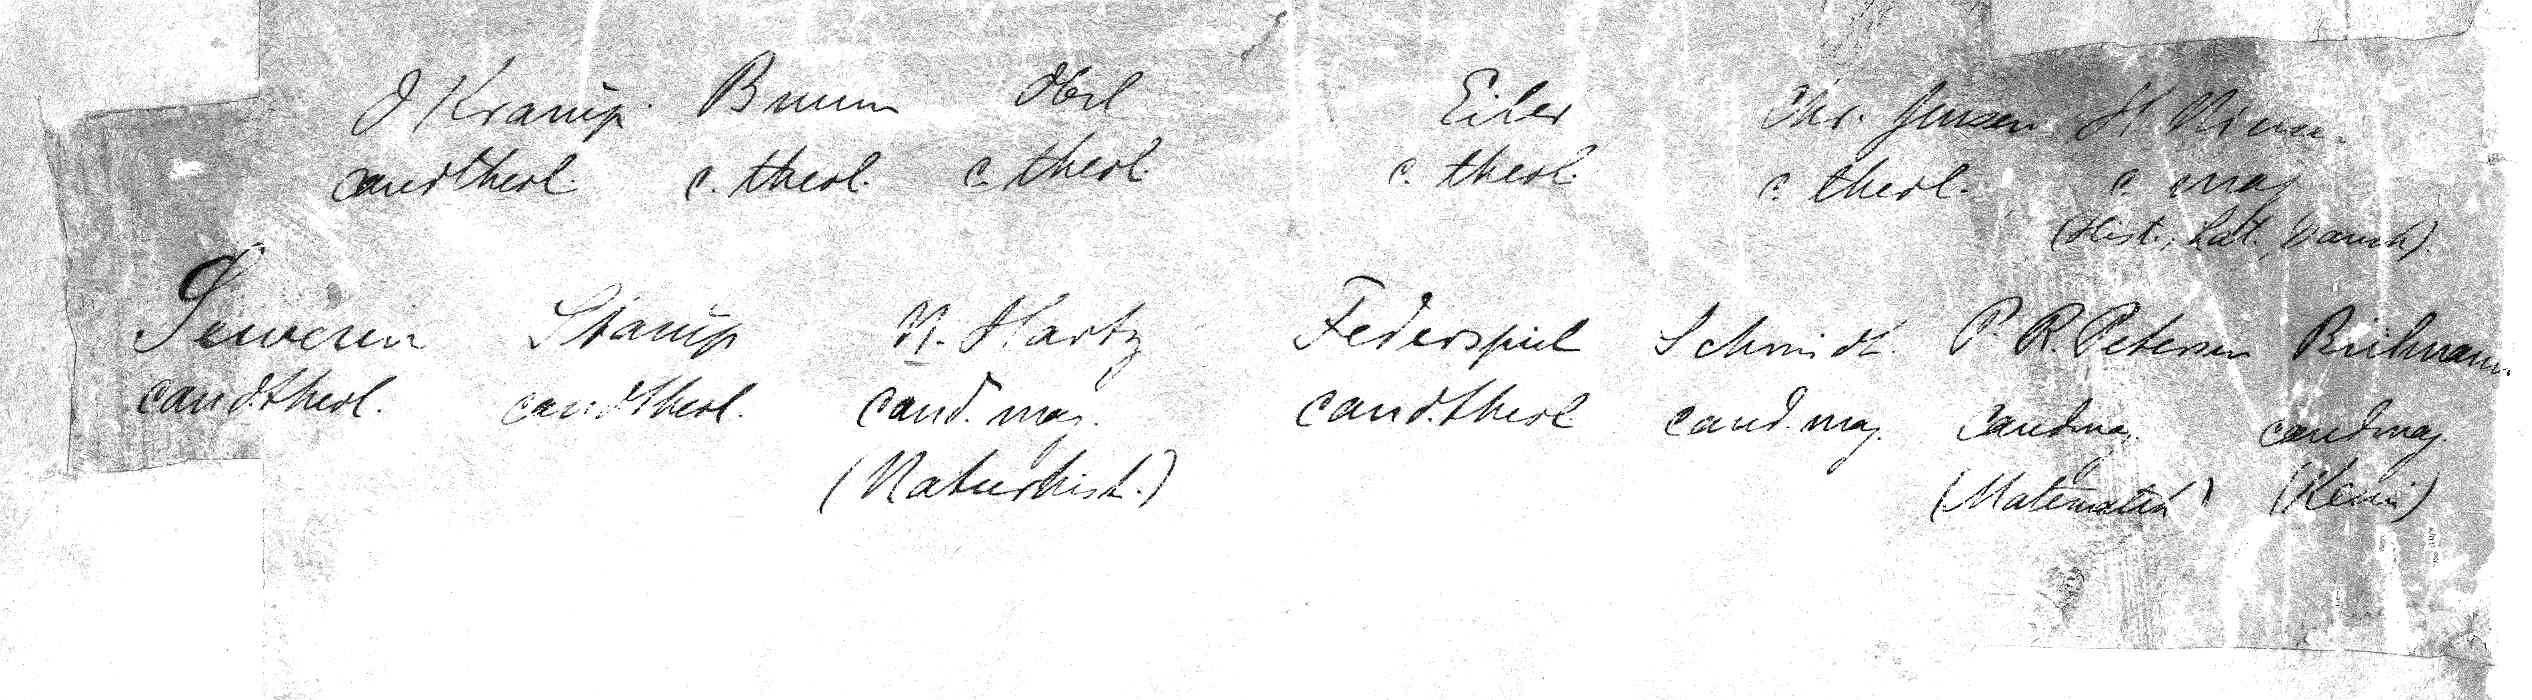 J Krarup. Bruun Obel Eiler Chr. Jensen H.
candtheol. c. theol. c. theol. c. theol. c. theol. c. mag
(Hist., Lat., Dansk).
Severin Strarup N. Hartz Federspiel Schmidt. P. R. Petersen Brihmann.
cand.theol. candtheol. cand. mag. cand.theol. cand. mag. candmag. candmag.
(Naturhist.) (Matematik) (Kemi)